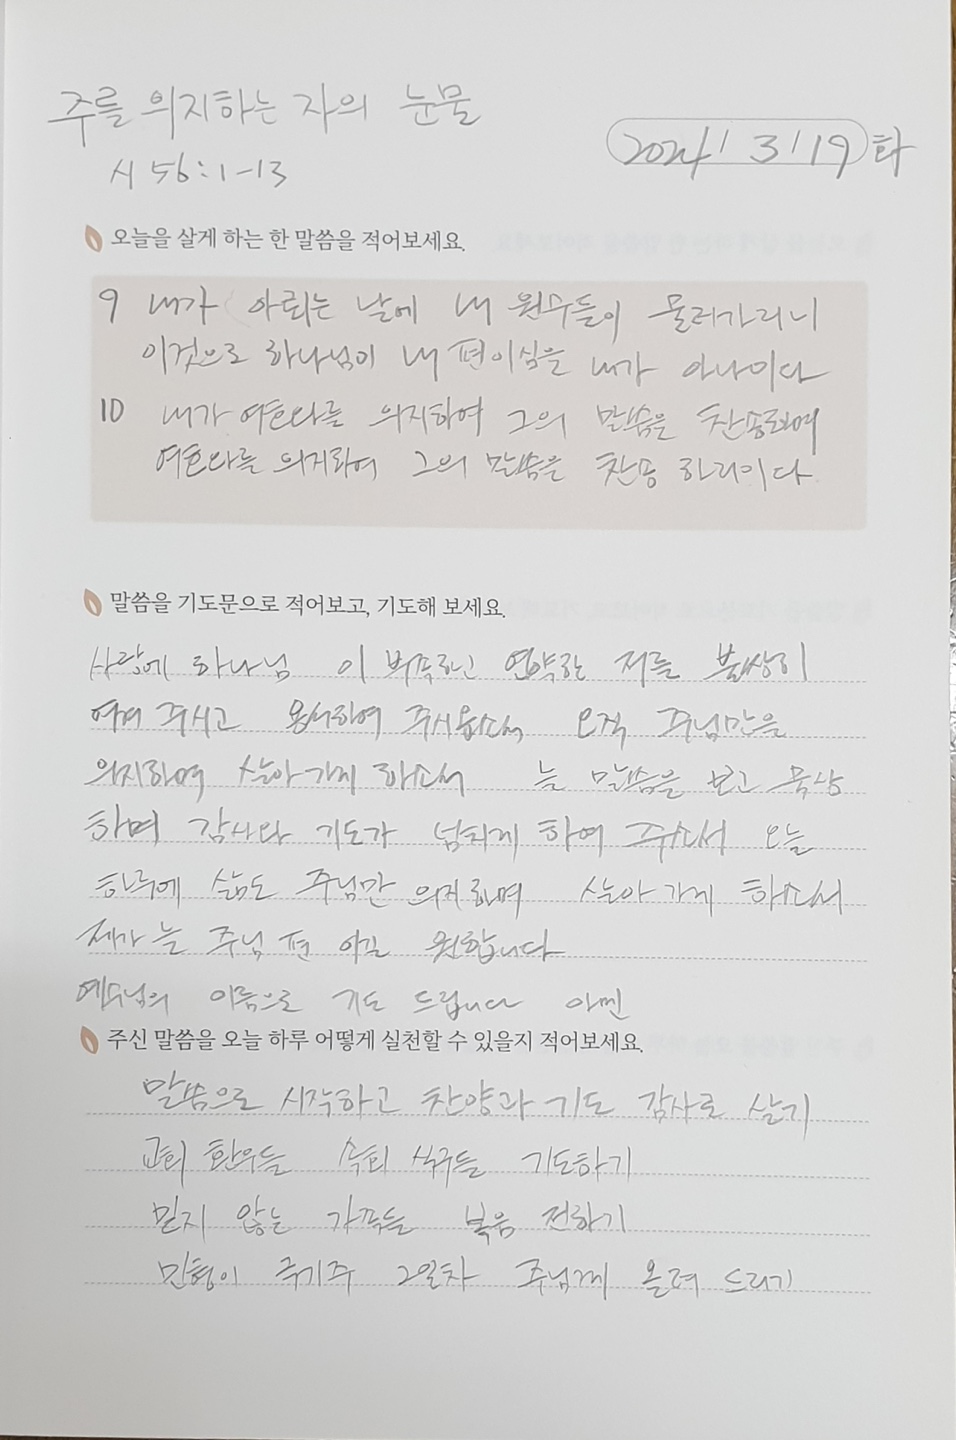 주를 의지하는 자의 눈물
2024 / 3 / 19 화
시 56:1-13
오늘을 살게 하는 한 말씀을 적어보세요.
9 내가 아뢰는 날에 내 원수들이 물러가리니
이것으로 하나님이 내 편이심을 내가 아나이다
10 내가 여호와를 의지하여 그의 말씀을 찬송하며
여호와를 의지하여 그의 말씀을 찬송 하리이다
말씀을 기도문으로 적어보고, 기도해 보세요.
사랑에 하나님 이 부족하고 연약한 저를 불쌍히
여겨 주시고 용서하여 주시옵소서 오직 주님만을
의지하며 살아가게 하소서 늘 말씀을 보고 묵상
하며 감사와 기도가 넘치게 하여 주소서 오늘
하루에 삶도 주님만 의지하며 살아가게 하소서
제가 늘 주님 편 이길 원합니다
예수님의 이름으로 기도 드립니다 아멘
주신 말씀을 오늘 하루 어떻게 실천할 수 있을지 적어보세요.
말씀으로 시작하고 찬양과 기도 감사로 살기
교회 환우들 속회 식구들 기도하기
믿지 않는 가족들 복음 전하기
민형이 2일차 주님께 올려 드리기